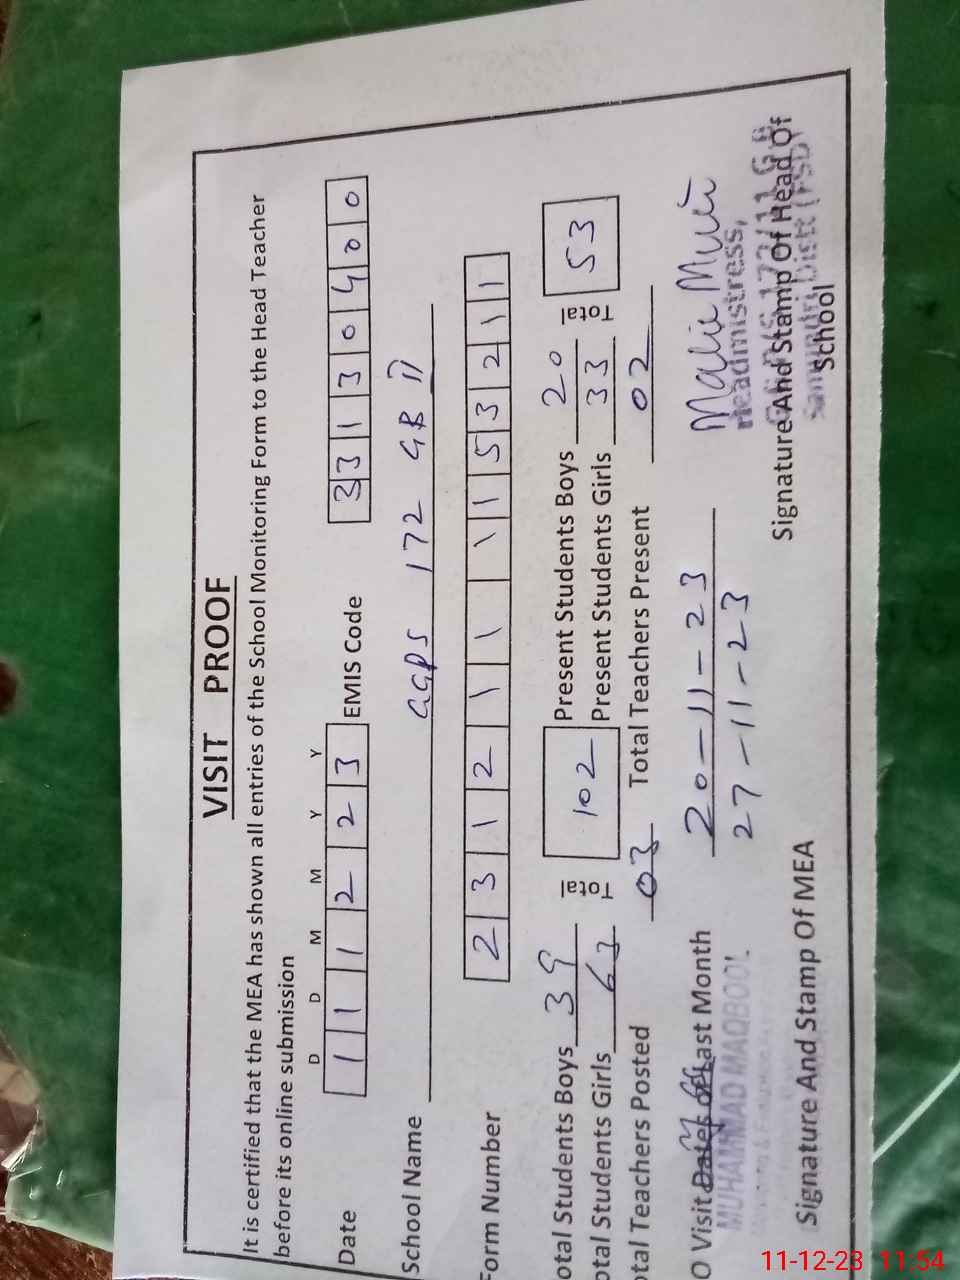 VISIT PROOF
It is certified that the MEA has shown all entries of the School Monitoring Form to the Head Teacher
before its online submission
D D M M Y Y
Date 1 1 1 2 2 3 EMIS Code 3 3 1 3 0 4 0 0
School Name GGPS 172 GB II
Form Number 2 3 1 2 1 1 1 1 5 3 2 1 1
otal Students Boys 39 Total 102 Present Students Boys 20 Total 53
otal Students Girls 63 Present Students Girls 33
otal Teachers Posted 03 Total Teachers Present 02
O Visit Dates of Last Month 20-11-23
27-11-23
MUHAMMAD MAQBOOL
Headmistress,
Signature And Stamp Of MEA
Signature And Stamp Of Head Of
School
11-12-23 11:54